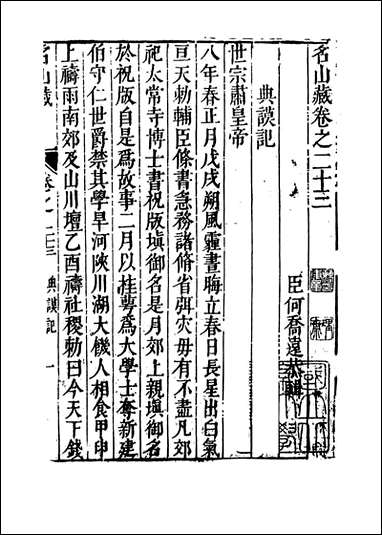 名山藏卷之二十三
臣何喬遠恭輯
典謨記
世宗肅皇帝
八年春正月戊戌朔風霾晝晦立春日長星出白氣
亘天勅輔臣條書急務諸脩省弭灾毋有不盡凡郊
祀太常寺博士書祝版塡御名是月郊上親塡御名
於祝版自是爲故事二月以桂萼爲大學士奪新建
伯守仁世爵禁其學旱河陝川湖大饑人相食甲申
上禱雨南郊及山川壇乙酉禱社稷勅曰今天下錢
名山藏
卷之二十三
典謨記
一